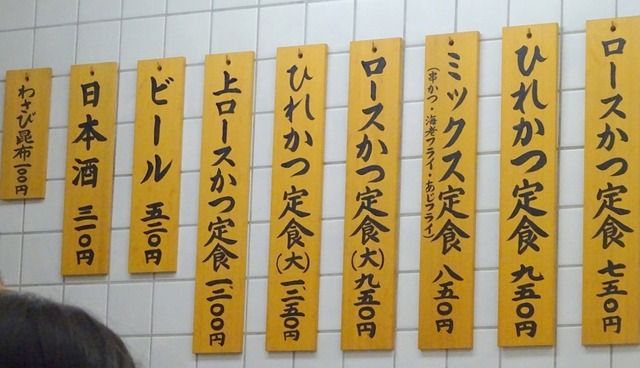 ロースかつ定食 七五〇円
ひれかつ定食 九五〇円
ミックス定食 八五〇円
(串かつ・海老フライ・あじフライ)
ロースかつ定食(大) 九五〇円
ひれかつ定食(大) 一二五〇円
上ロースかつ定食 一二〇〇円
ビール 五二〇円
日本酒 三一〇円
わさび昆布 一〇〇円